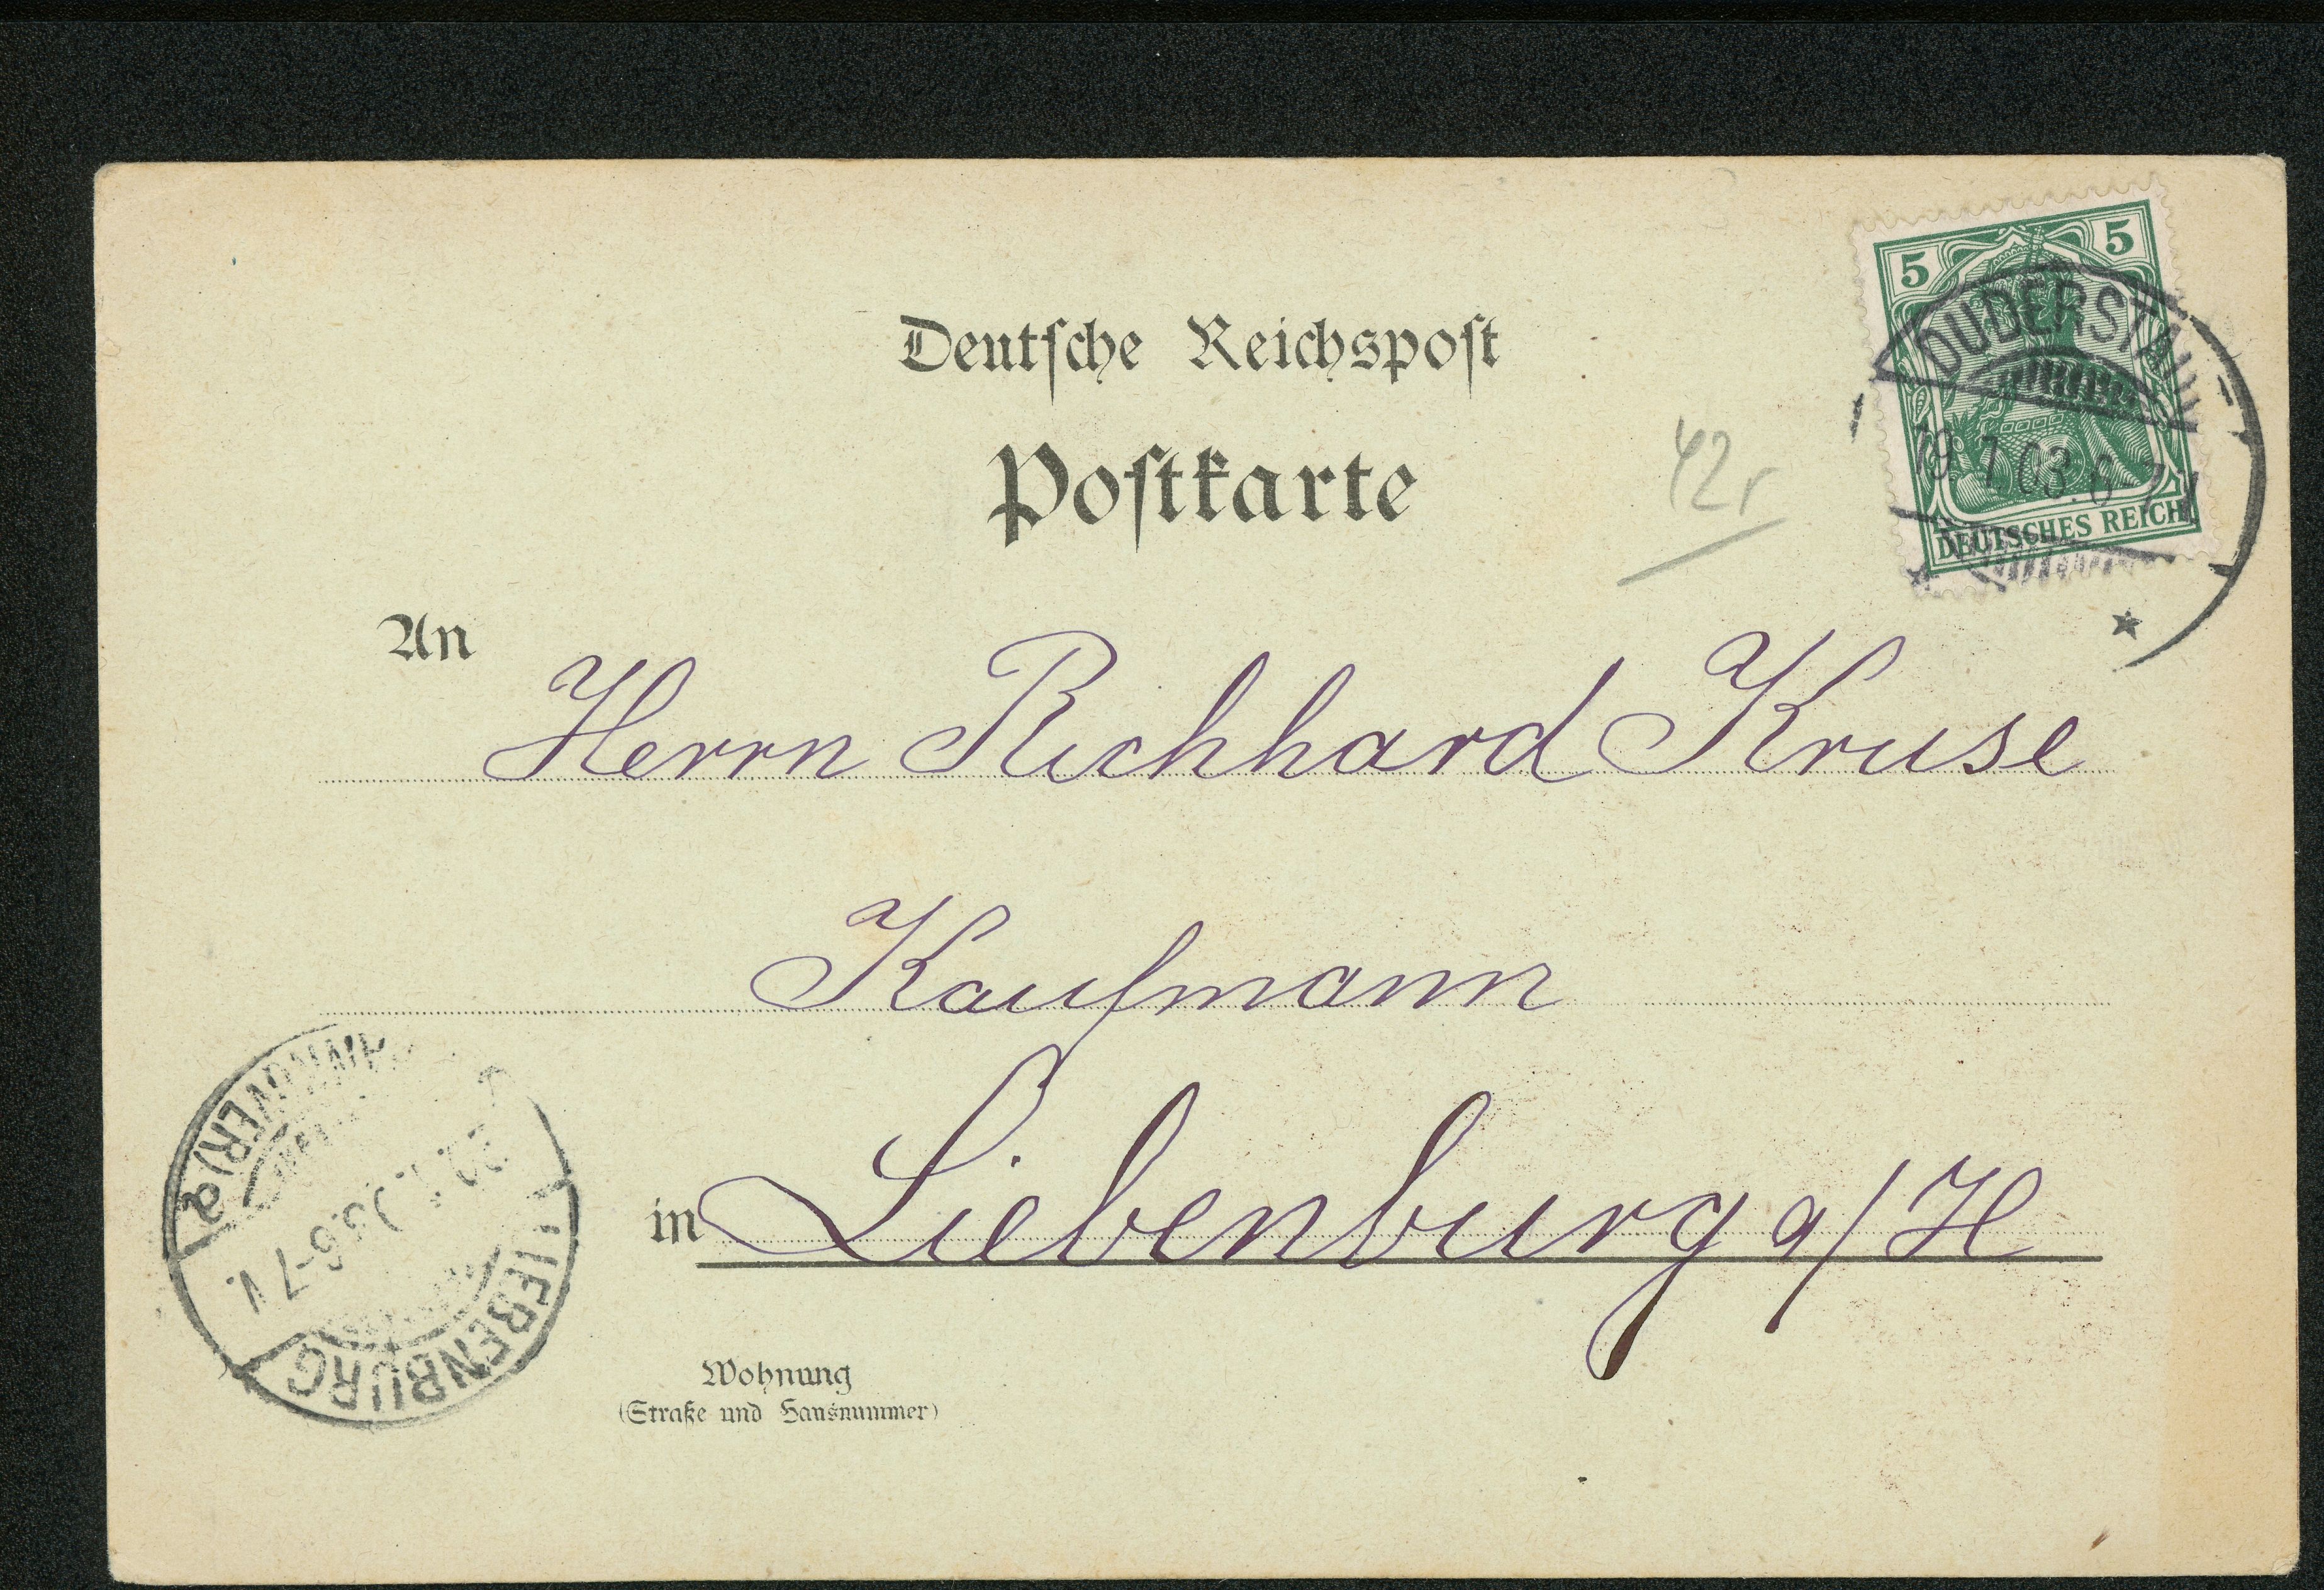 5 5
DUDERSTADT
19.1.03.6-7 N
DEUTSCHES REICH
Deutsche Reichspost
Postkarte
42r
An
Herrn Richhard Kruse
Kaufmann
in Liebenburg a/H
LIEBENBURG
6-7 V.
Wohnung
(Straße und Hausnummer)